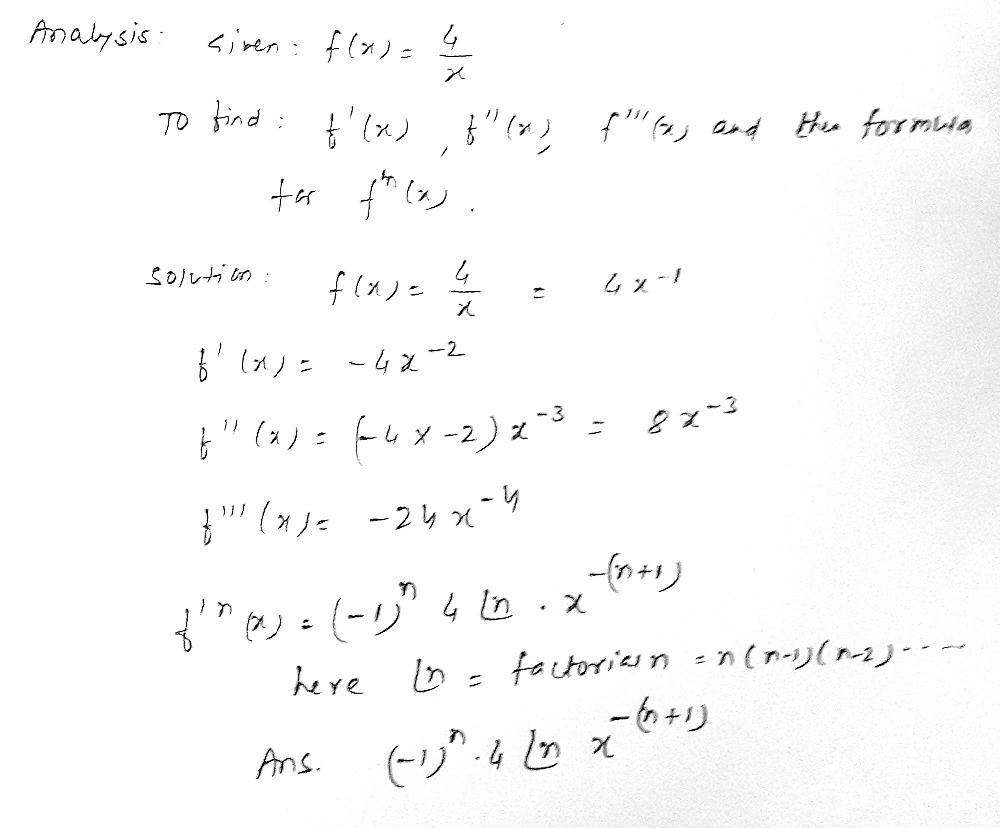 Analysis: Given: f(x) = 4/x
To find: f'(x), f''(x), f'''(x) and the formula
for fⁿ(x).
Solution: f(x) = 4/x = 4x⁻¹
f'(x) = -4x⁻²
f''(x) = (-4 × -2) x⁻³ = 8x⁻³
f'''(x) = -24x⁻⁴
f'ⁿ(x) = (-1)ⁿ 4 ⌊n . x^-(n+1)
here ⌊n = factorial n = n(n-1)(n-2)----
Ans. (-1)ⁿ . 4 ⌊n x^-(n+1)